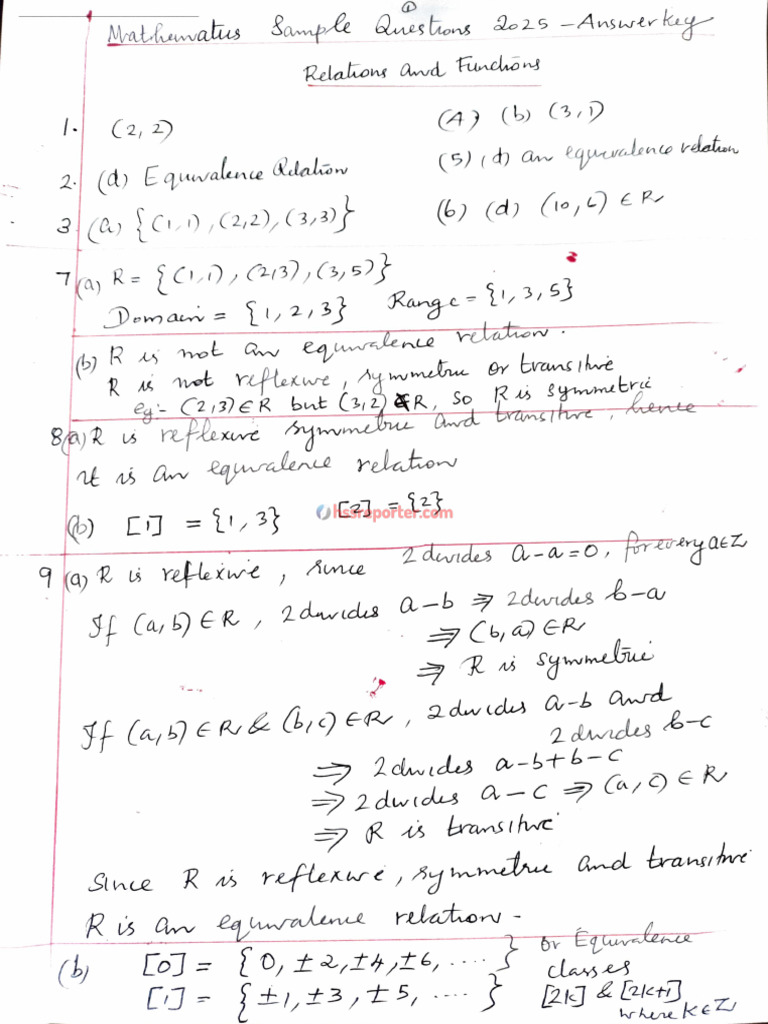 ①
Mathematics Sample Questions 2025 – Answer key
Relations and Functions
1. (2, 2)
2. (d) Equivalence Relation
3 (a) {(1,1), (2,2), (3,3)}
(4) (b) (3,1)
(5), (d) an equivalence relation
(6) (d) (10, 6) ∈ R
7 (a) R = {(1,1), (2,3), (3,5)}
Domain = {1, 2, 3} Range = {1, 3, 5}
(b) R is not an equivalence relation.
R is not reflexive, symmetric or transitive
eg:- (2,3) ∈ R but (3,2) ∉ R, so R is symmetric
8 (a) R is reflexive symmetric and transitive, hence
it is an equivalence relation
(b) [1] = {1, 3} [2] = {2}
hssreporter.com
9 (a) R is reflexive, since 2 divides a-a = 0, for every a∈Z
If (a,b) ∈ R, 2 divides a-b ⇒ 2 divides b-a
⇒ (b,a) ∈ R
⇒ R is symmetric
If (a,b) ∈ R & (b,c) ∈ R, 2 divides a-b and
2 divides b-c
⇒ 2 divides a-b+b-c
⇒ 2 divides a-c ⇒ (a,c) ∈ R
⇒ R is transitive
Since R is reflexive, symmetric and transitive
R is an equivalence relation -
(b) [0] = {0, ±2, ±4, ±6, ....} or Equivalence
classes
[1] = {±1, ±3, ±5, ....} [2k] & [2k+1]
where k∈Z